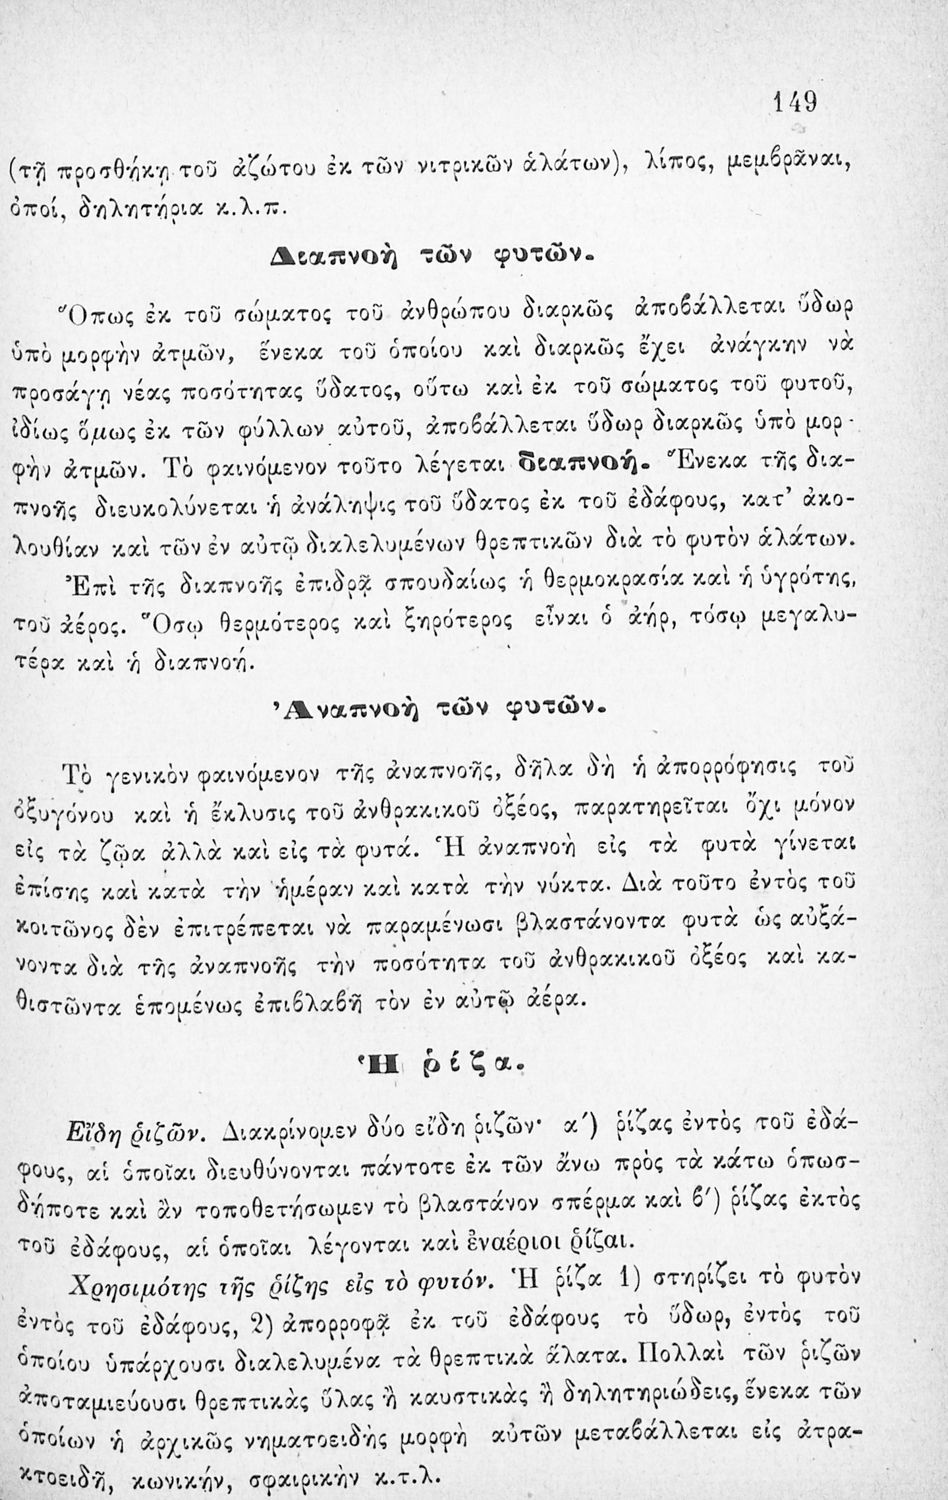 149
(τῇ προσθήκῃ τοῦ ἀζώτου ἐκ τῶν νιτρικῶν ἁλάτων), λίπος, μεμβρᾶναι,
ὀποί, δηλητήρια κ.λ.π.
Διαπνοὴ τῶν φυτῶν.
Ὅπως ἐκ τοῦ σώματος τοῦ ἀνθρώπου διαρκῶς ἀποβάλλεται ὕδωρ
ὑπὸ μορφὴν ἀτμῶν, ἕνεκα τοῦ ὁποίου καὶ διαρκῶς ἔχει ἀνάγκην νὰ
προσάγῃ νέας ποσότητας ὕδατος, οὕτω καὶ ἐκ τοῦ σώματος τοῦ φυτοῦ,
ἰδίως ὅμως ἐκ τῶν φύλλων αὐτοῦ, ἀποβάλλεται ὕδωρ διαρκῶς ὑπὸ μορ-
φὴν ἀτμῶν. Τὸ φαινόμενον τοῦτο λέγεται διαπνοή. Ἕνεκα τῆς δια-
πνοῆς διευκολύνεται ἡ ἀνάληψις τοῦ ὕδατος ἐκ τοῦ ἐδάφους, κατ’ ἀκο-
λουθίαν καὶ τῶν ἐν αὐτῷ διαλελυμένων θρεπτικῶν διὰ τὸ φυτὸν ἁλάτων.
Ἐπὶ τῆς διαπνοῆς ἐπιδρᾷ σπουδαίως ἡ θερμοκρασία καὶ ἡ ὑγρότης,
τοῦ ἀέρος. Ὅσῳ θερμότερος καὶ ξηρότερος εἶναι ὁ ἀήρ, τόσῳ μεγαλυ-
τέρα καὶ ἡ διαπνοή.
Ἀναπνοὴ τῶν φυτῶν.
Τὸ γενικὸν φαινόμενον τῆς ἀναπνοῆς, δῆλα δὴ ἡ ἀπορρόφησις τοῦ
ὀξυγόνου καὶ ἡ ἔκλυσις τοῦ ἀνθρακικοῦ ὀξέος, παρατηρεῖται ὄχι μόνον
εἰς τὰ ζῷα ἀλλὰ καὶ εἰς τὰ φυτά. Ἡ ἀναπνοὴ εἰς τὰ φυτὰ γίνεται
ἐπίσης καὶ κατὰ τὴν ἡμέραν καὶ κατὰ τὴν νύκτα. Διὰ τοῦτο ἐντὸς τοῦ
κοιτῶνος δὲν ἐπιτρέπεται νὰ παραμένωσι βλαστάνοντα φυτὰ ὡς αὐξά-
νοντα διὰ τῆς ἀναπνοῆς τὴν ποσότητα τοῦ ἀνθρακικοῦ ὀξέος καὶ κα-
θιστῶντα ἑπομένως ἐπιβλαβῆ τὸν ἐν αὐτῷ ἀέρα.
Ἡ ῥίζα.
Εἴδη ῥιζῶν. Διακρίνομεν δύο εἴδη ῥιζῶν· α΄) ῥίζας ἐντὸς τοῦ ἐδά-
φους, αἱ ὁποῖαι διευθύνονται πάντοτε ἐκ τῶν ἄνω πρὸς τὰ κάτω ὁπωσ-
δήποτε καὶ ἂν τοποθετήσωμεν τὸ βλαστάνον σπέρμα καὶ β΄) ῥίζας ἐκτὸς
τοῦ ἐδάφους, αἱ ὁποῖαι λέγονται καὶ ἐναέριοι ῥίζαι.
Χρησιμότης τῆς ῥίζης εἰς τὸ φυτόν. Ἡ ῥίζα 1) στηρίζει τὸ φυτὸν
ἐντὸς τοῦ ἐδάφους, 2) ἀπορροφᾷ ἐκ τοῦ ἐδάφους τὸ ὕδωρ, ἐντὸς τοῦ
ὁποίου ὑπάρχουσι διαλελυμένα τὰ θρεπτικὰ ἅλατα. Πολλαὶ τῶν ῥιζῶν
ἀποταμιεύουσι θρεπτικὰς ὕλας ἢ καυστικὰς ἢ δηλητηριώδεις, ἕνεκα τῶν
ὁποίων ἡ ἀρχικῶς νηματοειδὴς μορφὴ αὐτῶν μεταβάλλεται εἰς ἀτρα-
κτοειδῆ, κωνικήν, σφαιρικὴν κ.τ.λ.